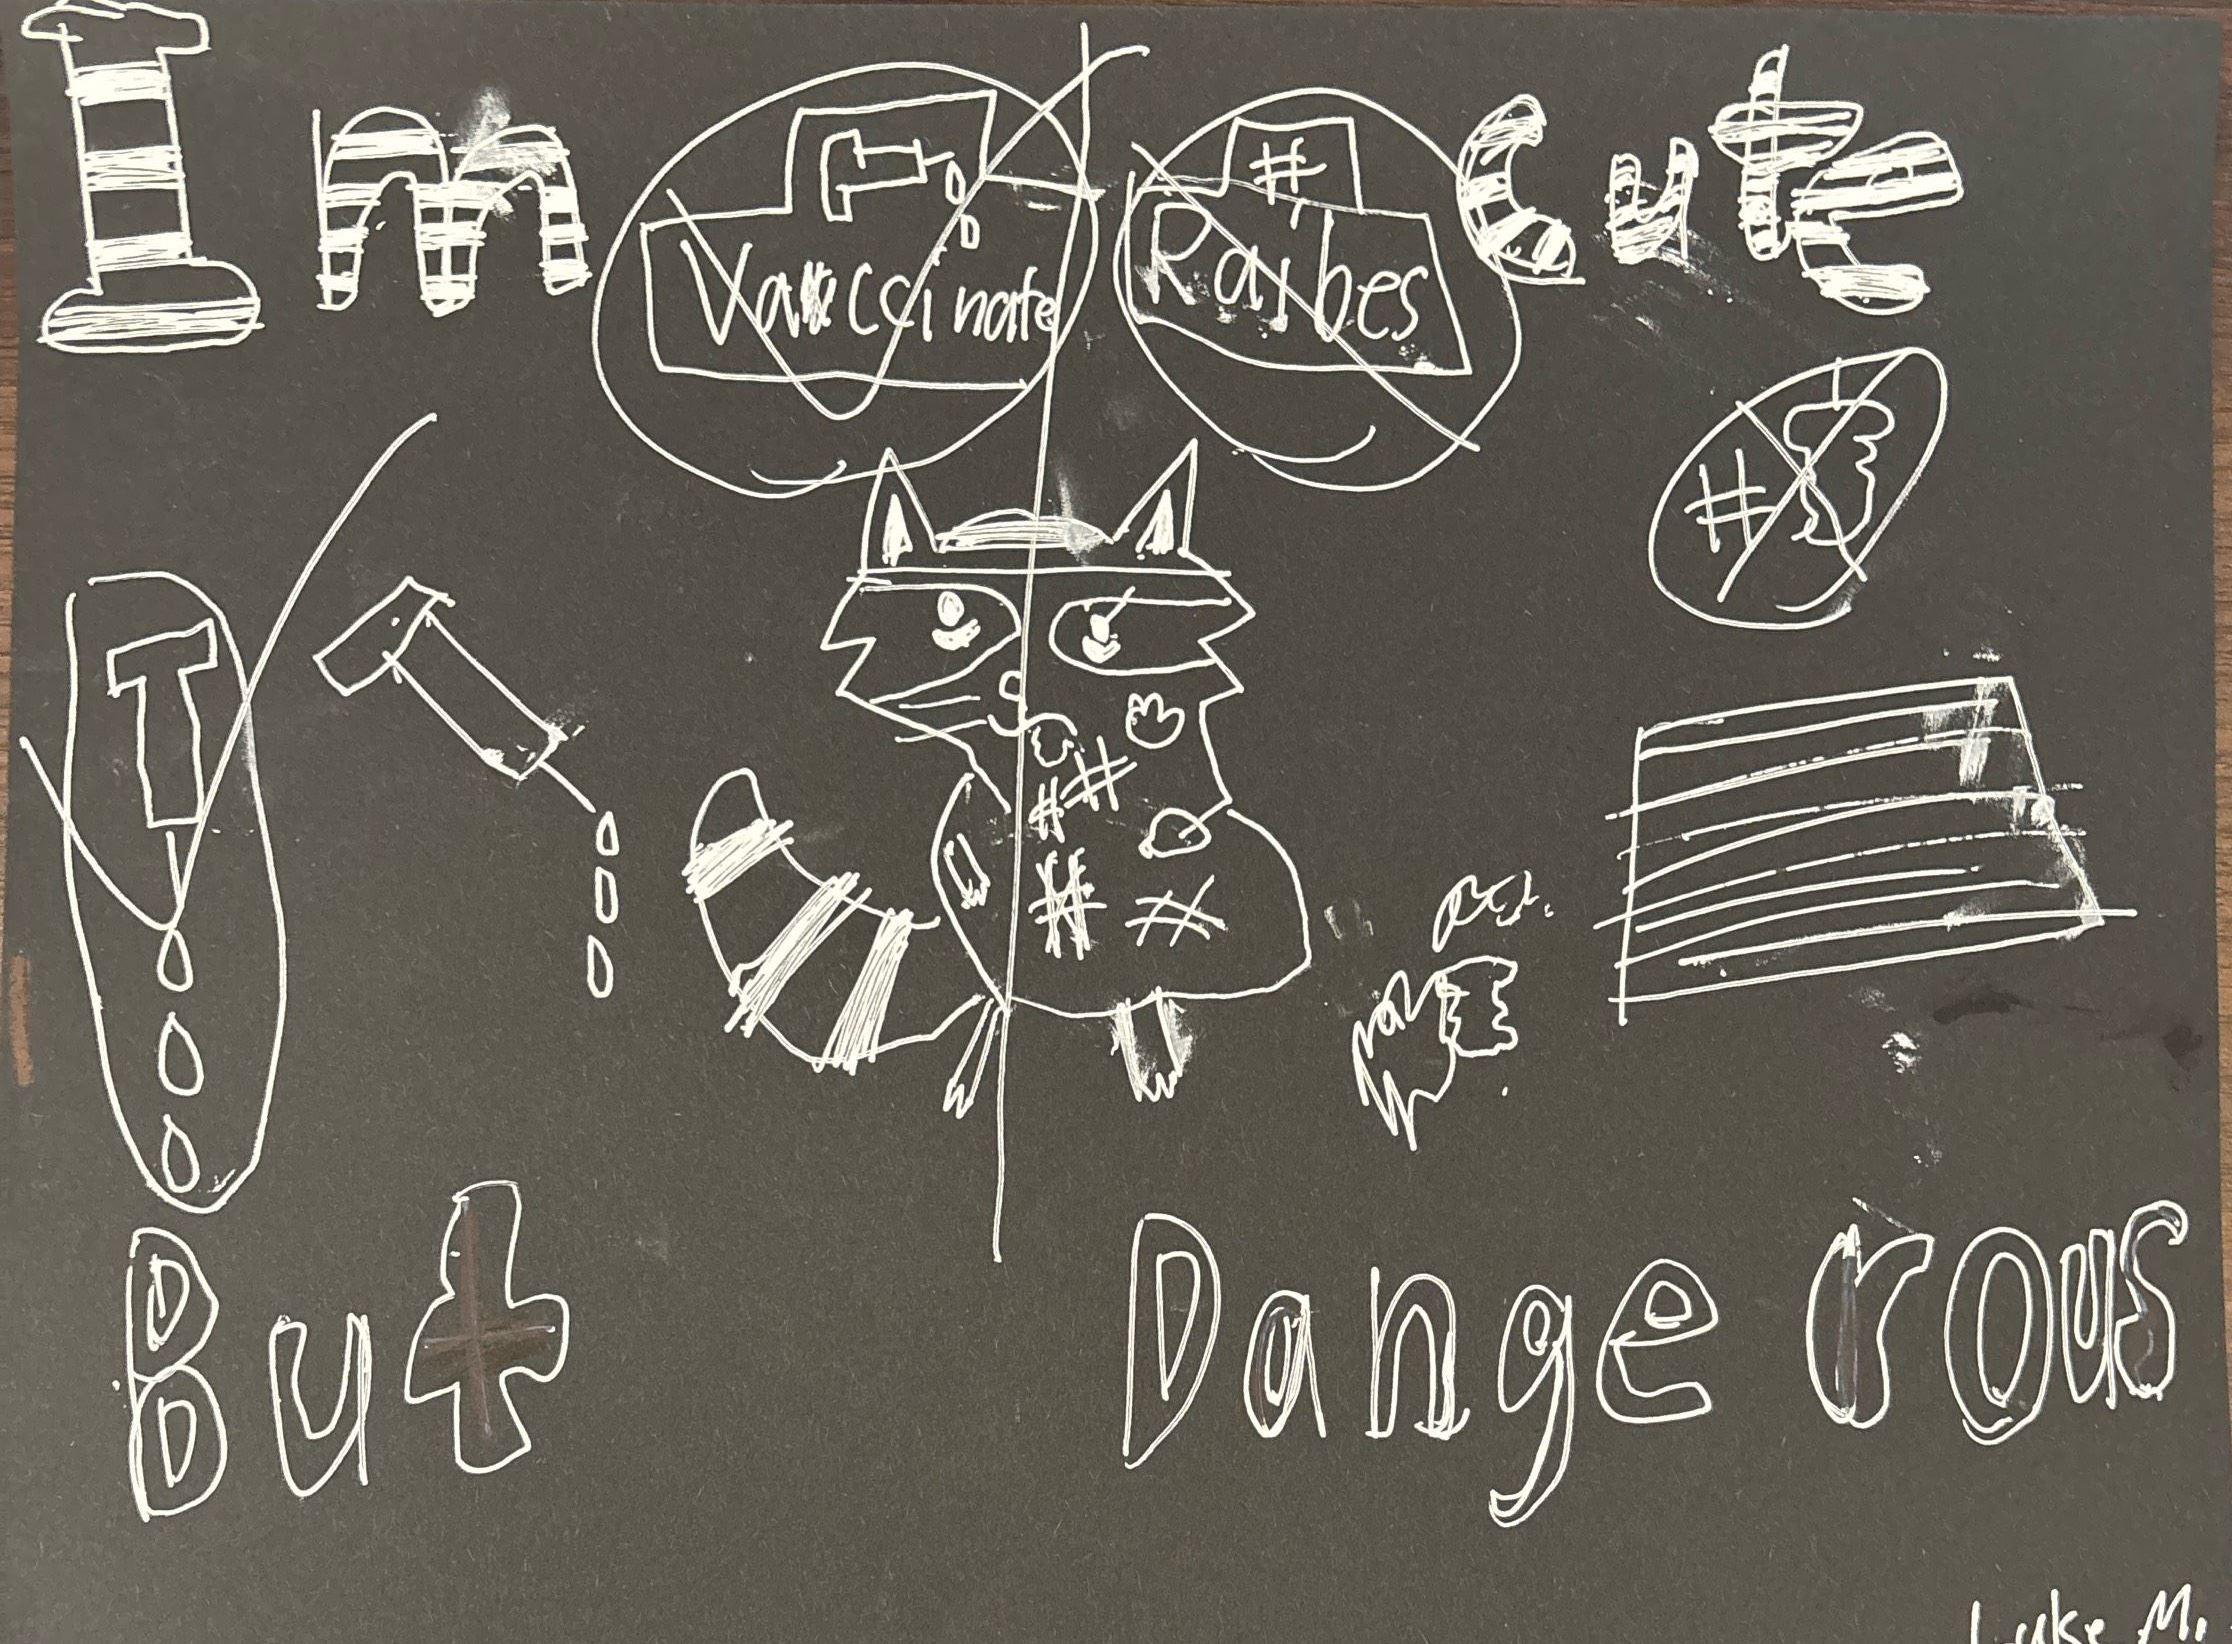 Im Cute
Vaccinate
#
Raibes
#
# #
# #
But Dangerous
Luke M.